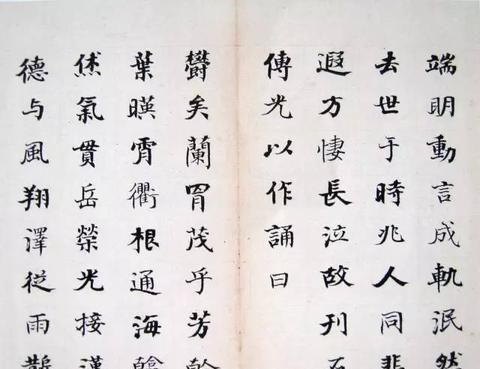 端明動言成軌泯然
去世于時兆人同悲
遐方悽長泣故刊石
傳光以作誦曰
欝矣蘭胄茂乎芳幹
葉暎霄衢根通海
烋氣貫岳榮光接漢
德与風翔澤従雨